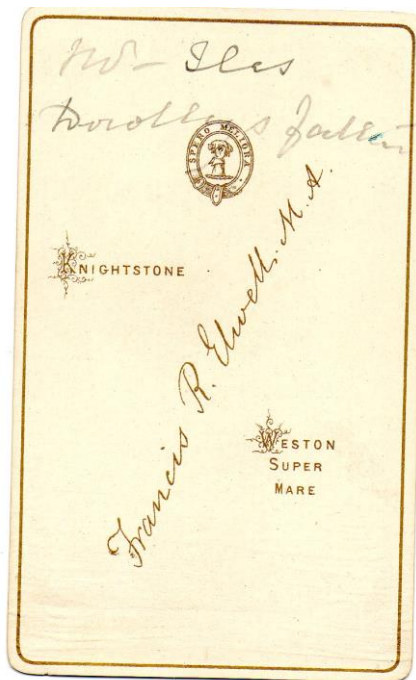 Mr Iles
Dorothy's father
SPERO MELIORA
KNIGHTSTONE
Francis R. Elwell. M.A.
WESTON
SUPER
MARE